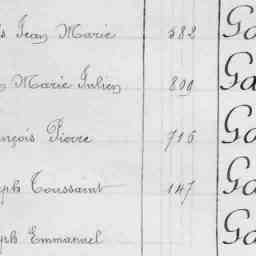 s Jean Marie 582 Ga
n Marie Julien 809 Ga
nçois Pierre 715 Ga
eph Toussaint 147 Ga
eph Emmanuel Ga